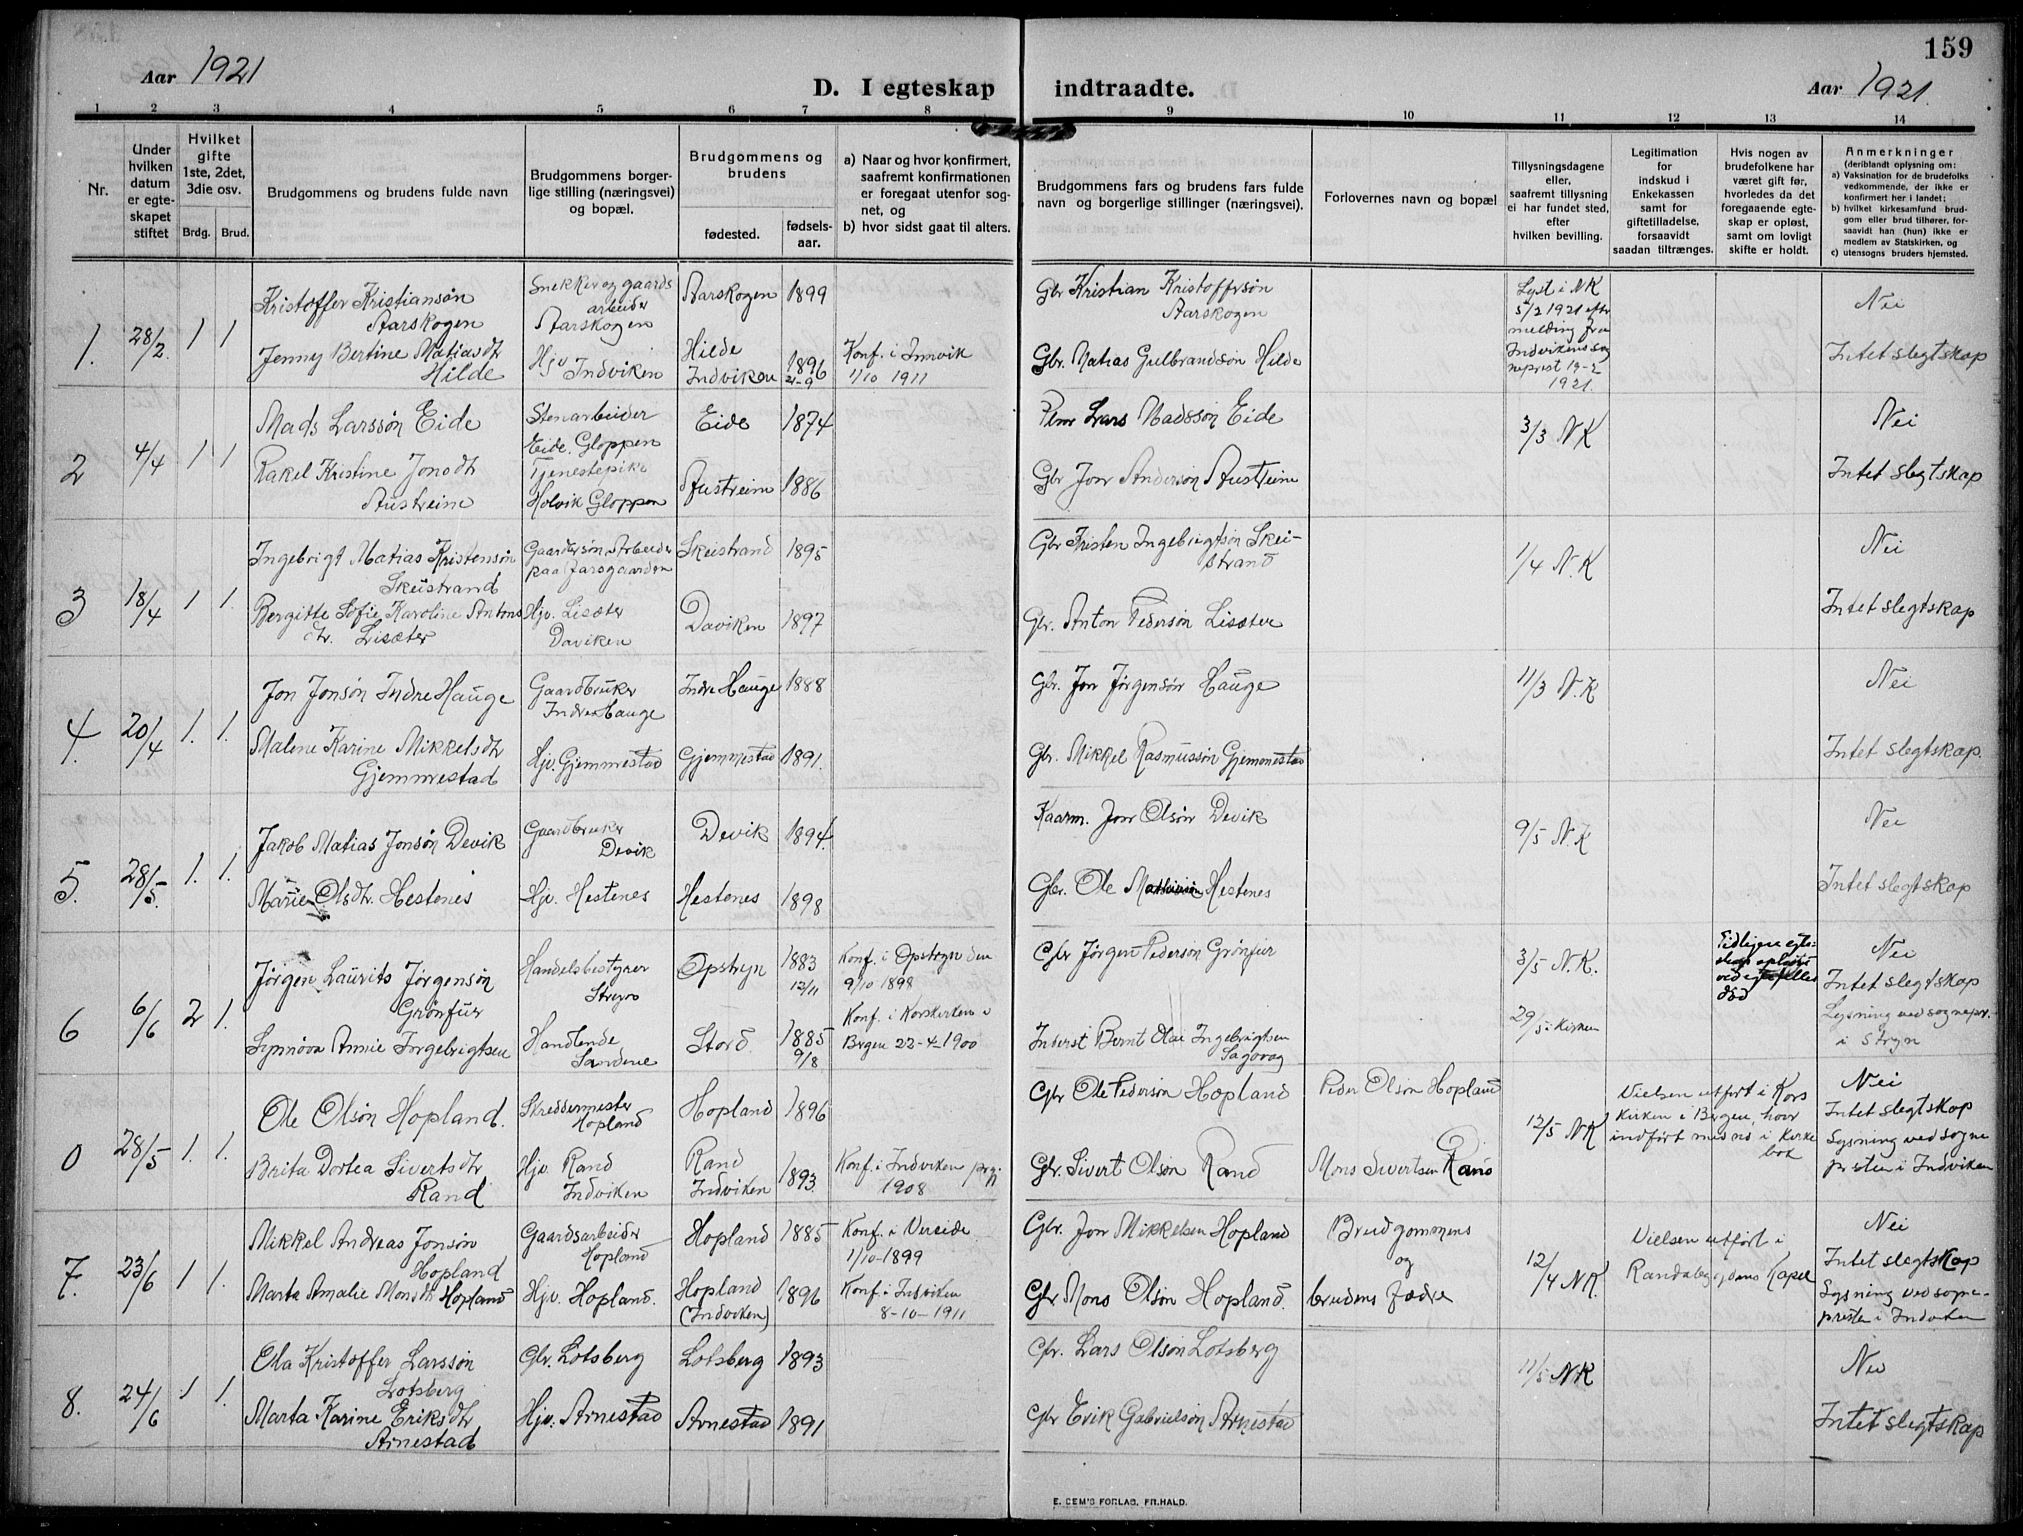 159
Aar 1921
D. I egteskap indtraadte.
Aar 1921.
1 2 3 4 5 6 7 8 9 10 11 12 13 14
Nr.
Under
hvilken
datum
er egte-
skapet
stiftet
Hvilket
gifte
1ste, 2det,
3die osv.
Brdg. Brud.
Brudgommens og brudens fulde navn
Brudgommens borger-
lige stilling (næringsvei)
og bopæl.
Brudgommens og
brudens
fødested.
fødsels-
aar.
a) Naar og hvor konfirmert,
saafremt konfirmationen
er foregaat utenfor sog-
net, og
b) hvor sidst gaat til alters.
Brudgommens fars og brudens fars fulde
navn og borgerlige stillinger (næringsvei).
Forlovernes navn og bopæl
Tillysningsdagene
eller,
saafremt tillysning
ei har fundet sted,
efter
hvilken bevilling.
Legitimation
for
indskud i
Enkekassen
samt for
giftetilladelse,
forsaavidt
saadan tiltrænges.
Hvis nogen av
brudefolkene har
været gift før,
hvorledes da det
foregaaende egte-
skap er opløst,
samt om lovligt
skifte er holdt.
Anmerkninger
(deriblandt oplysning om:
a) Vaksination for de brudefolks
vedkommende, der ikke er
konfirmert her i landet;
b) hvilket kirkesamfund brud-
gom eller brud tilhører, for-
saavidt han (hun) ikke er
medlem av Statskirken, og
c) utensogns bruders hjemsted.
1. 28/2 1 1
Kristoffer Kristiansøn
Aarskogen
Jenny Bertine Matiasdtr
Hilde
Snekker og gaards
arbeider
Aarskogen
Hjv Indviken
Aarskogen 1899
Hilde
Indviken 1896
21-9
Konf. i Innvik
1/10 1911
Gbr Kristian Kristoffersøn
Aarskogen
Gbr. Matias Gulbrandsøn Hilde
Lyst i NK
5/2 1921 efter
melding fra
Indvikens sog
neprest 19-2
1921.
Nei
Intet slegtskap
2 4/4 1 1
Mads Larssøn Eide
Rakel Kristine Jonsdtr
Austreim
Stenarbeider
Eide. Gloppen
Tjenestepike
Holvik Gloppen
Eide 1874
Austreim 1886
Lars Madssøn Eide
Gbr Jon Andersøn Austreim
3/3 N.K
Nei
Intet slegtskap
3 18/4 1 1.
Ingebrigt Matias Kristensøn
Skeistrand
Bergitte Sofie Karoline Antons
dtr. Lisæter
Gaardersøn. Arbeider
paa farsgaarden
Hjv. Lisæter
Daviken
Skeistrand 1895
Daviken 1897
Gbr Kristen Ingebrigtsøn Skei-
strand
Gbr. Anton Pedersøn Lisæter
1/4 N.K
Nei
Intet slegtskap
4. 20/4 1. 1.
Jon Jonsøn Indre Hauge
Malene Karine Mikkelsdtr
Gjemmestad
Gaardbruker
Indre Hauge
Hjv. Gjemmestad
Indre Hauge 1888
Gjemmestad 1891.
Gbr. Jon Jørgensøn Hauge
Gbr. Mikkel Rasmussøn Gjemmestad
11/3 N.K
Nei
Intet slegtskap.
5. 28/5. 1. 1.
Jakob Matias Jonsøn Devik
Marie Olsdtr. Hestenes
Gaardbruker
Devik
Hjv. Hestenes
Devik 1894.
Hestenes 1898
Kaarm. Jon Olsøn Devik
Gbr. Ole Hestenes
9/5 N.K
Nei
Intet slegtskap
6 6/6 2 1.
Jørgen Laurits Jørgensøn
Grønfur
Synnøva Annie Ingebrigtsen
Handelsbestyrer
Stryn
Handlende
Sandene
Opstryn 1883
12/11
Stord 1885
9/8
Konf. i Opstryn den
9/10 1898
Konf. i Korskirken i
Bergen 22-4-1900
Gbr Jørgen Pedersøn Grønfur
Inderst Bernt Olai Ingebrigtsen
Sagvag
3/5 N.K.
29/5 i kirken
Tidligere egte-
skap opløst
ved egtefelles
død
Nei
Intet slegtskap
Lysning ved sognepr.
i Stryn
0 28/5 1. 1.
Ole Olsøn Hopland.
Brita Dortea Sivertsdtr
Rand
Skreddermester
Hopland
Hjv. Rand
Indviken
Hopland 1896
Rand
Indviken 1893
Konf. i Indviken prg.
1908
Gbr Ole Pedersøn Hopland
Gbr. Sivert Olsøn Rand
Peder Olsøn Hopland
Mons Sivertsen Rand
12/5 NK
Vielsen utført i Kors
kirken i Bergen, hvor
indført med no i kirke
bok
Nei
Intet slegtskap
Lysning ved sogne
presten i Indviken
7. 23/6 1 1.
Mikkel Andreas Jonsøn
Hopland
Marta Amalie Monsdtr Hopland
Gaardsarbeider
Hopland
Hjv. Hopland.
Hopland 1885
Hopland
(Indviken) 1896
Konf. i Vereide
1/10-1899
Konf. i Indviken
8-10-1911
Gbr. Jon Mikkelsen Hopland
Gbr Mons Olsøn Hopland.
Brudgommens
og
brudens fædre
12/4 N.K.
Vielsen utført i
Randabygdens Kapel
Nei
Intet slegtskap
Lysning ved sogne-
presten i Indviken
8. 24/6 1 1.
Ola Kristoffer Larssøn
Lotsberg
Marta Karine Eriksdtr
Arnestad
Gbr. Lotsberg
Hjv. Arnestad
Lotsberg 1893
Arnestad 1891
Gbr. Lars Olsøn Lotsberg
Gbr Erik Gabrielsøn Arnestad
11/5 NK
Nei
Intet slegtskap
E. SEM'S FORLAG, FR.HALD.